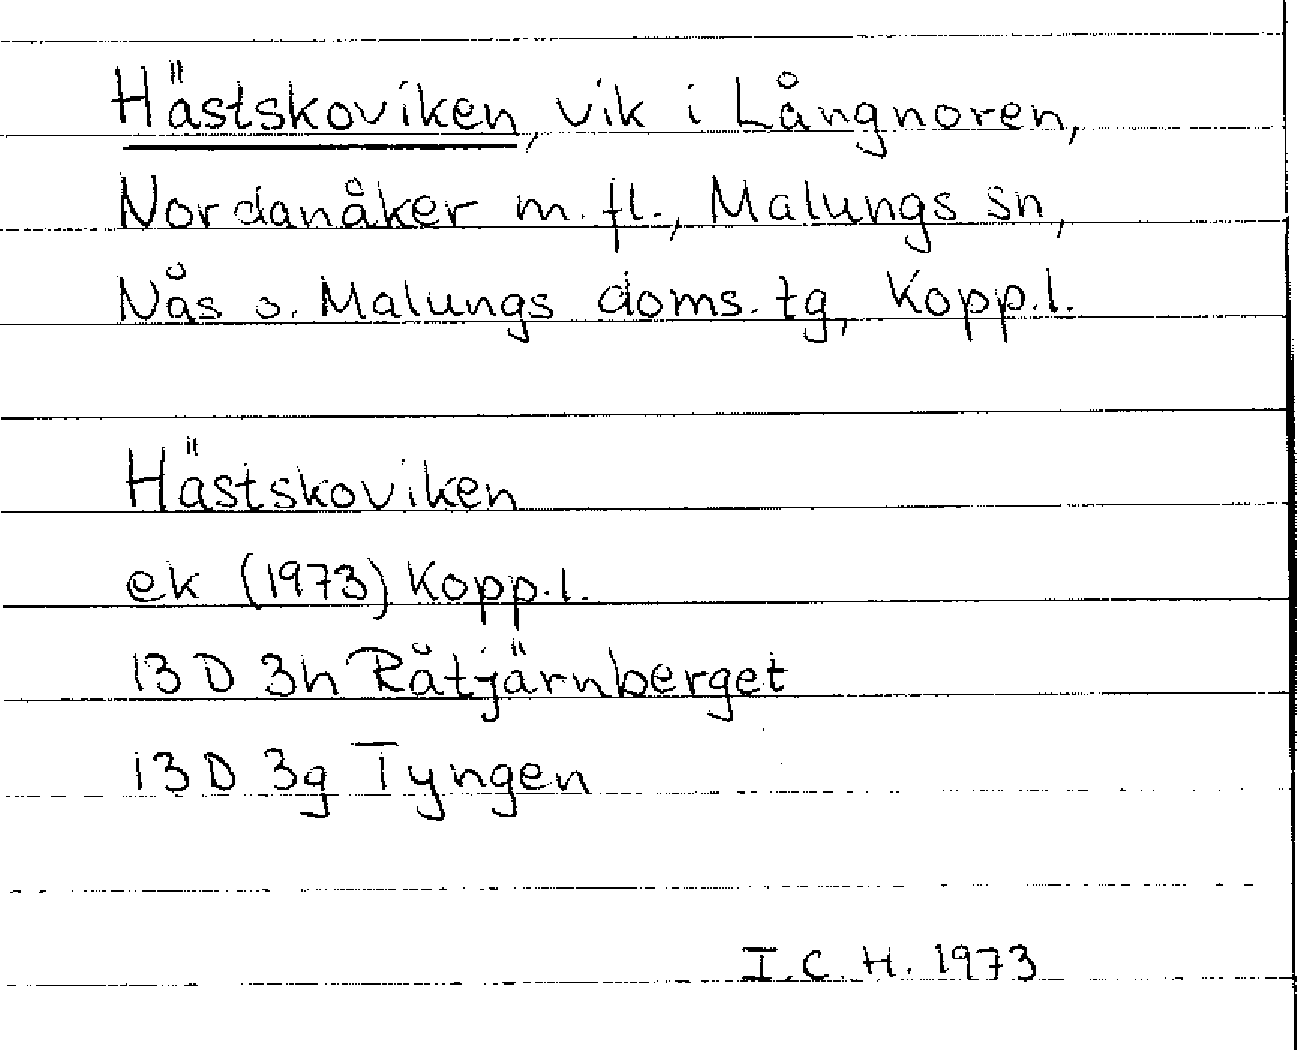 Hästskoviken, vik i Långnoren,
Nordanåker m. fl., Malungs sn,
Nås o. Malungs doms. tg, Kopp.l.
Hästskoviken
ek (1973) Kopp.l.
13 D 3h Råtjärnberget
13 D 3g Tyngen
I. C. H. 1973